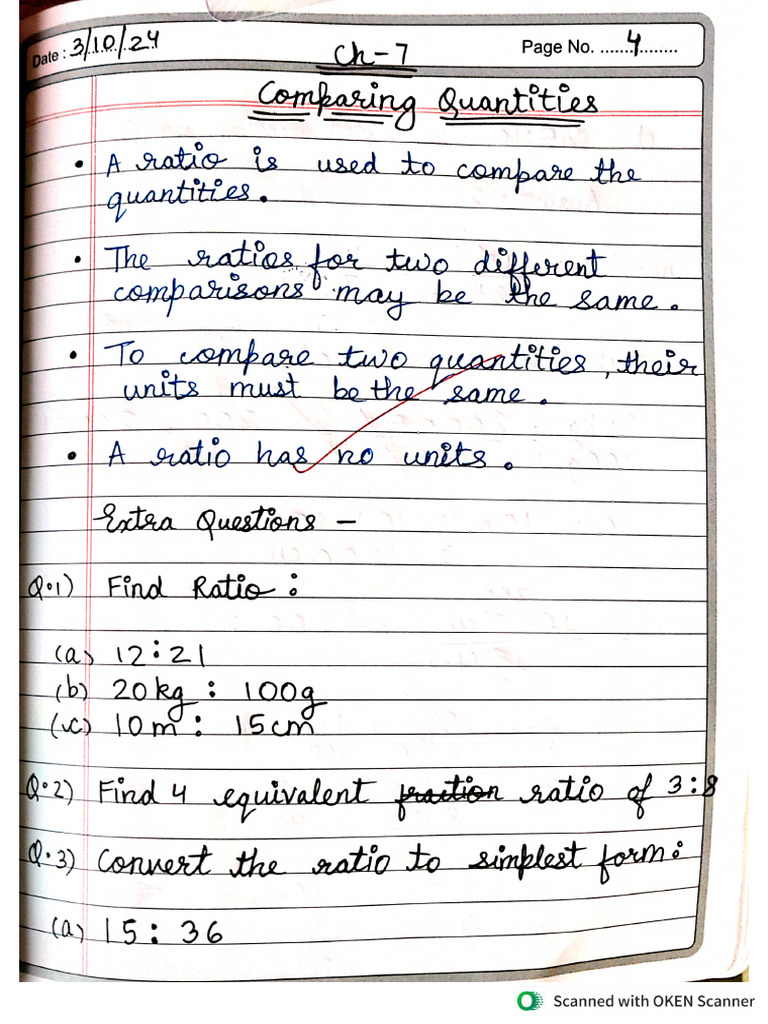 Date : 3/10/24
Ch-7
Page No. .......4........
Comparing Quantities
• A ratio is used to compare the
quantities.
• The ratios for two different
comparisons may be the same.
• To compare two quantities, their
units must be the same.
• A ratio has no units.
Extra Questions –
Q.1) Find Ratio :
(a) 12:21
(b) 20kg : 100g
(c) 10m : 15cm
Q.2) Find 4 equivalent fraction ratio of 3:8
Q.3) Convert the ratio to simplest form:
(a) 15 : 36
Scanned with OKEN Scanner